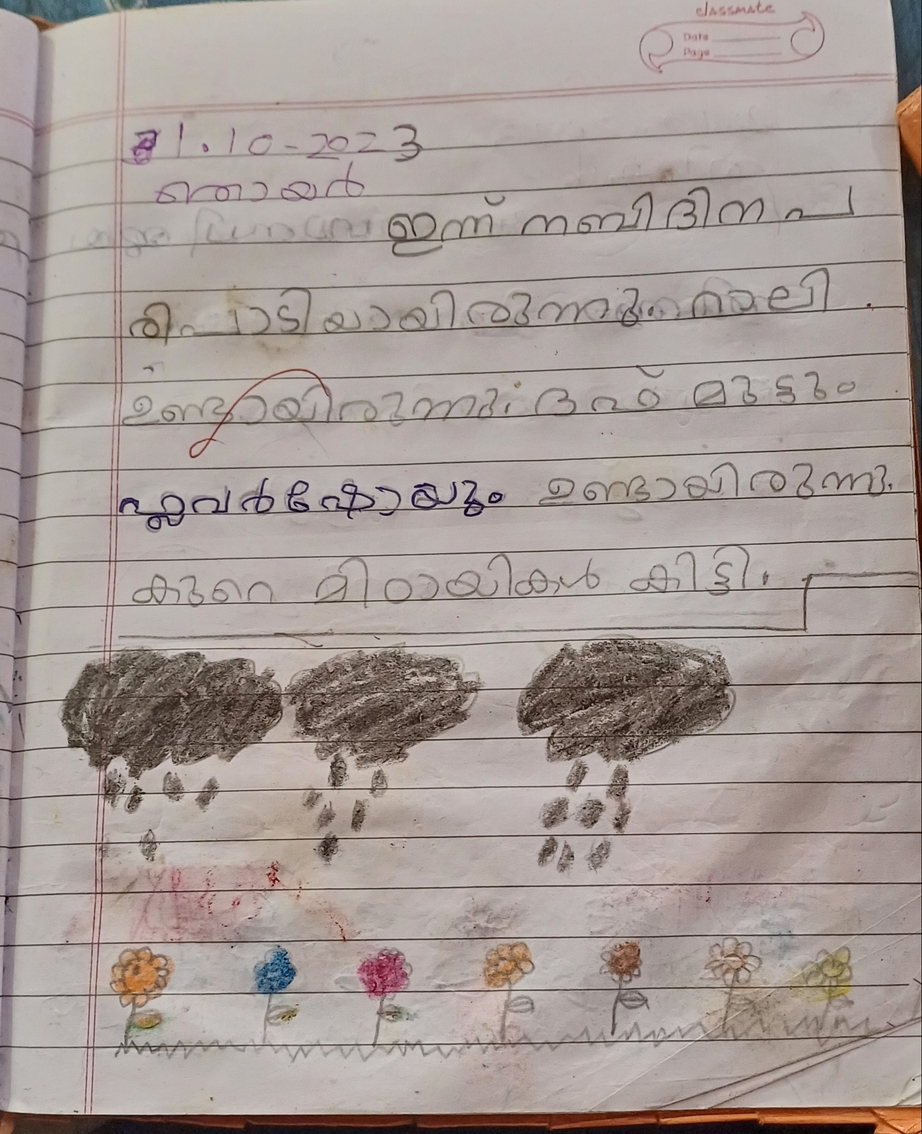 classmate
Date
Page
1.10-2023
ഞായർ
ഇന്ന് നബിദിന പ
രിപാടിയായിരുന്നു. റാലി
ഉണ്ടായിരുന്നു. ദഫ് മുട്ടും
ഫ്ലവർഷോയും ഉണ്ടായിരുന്നു.
കുറെ മിഠായികൾ കിട്ടി.